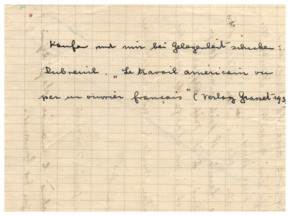 Kaufen und mir bei Gelegenheit schicken:
Dubreuil. „Le travail américain vu
par un ouvrier français" (Verlag Grasset